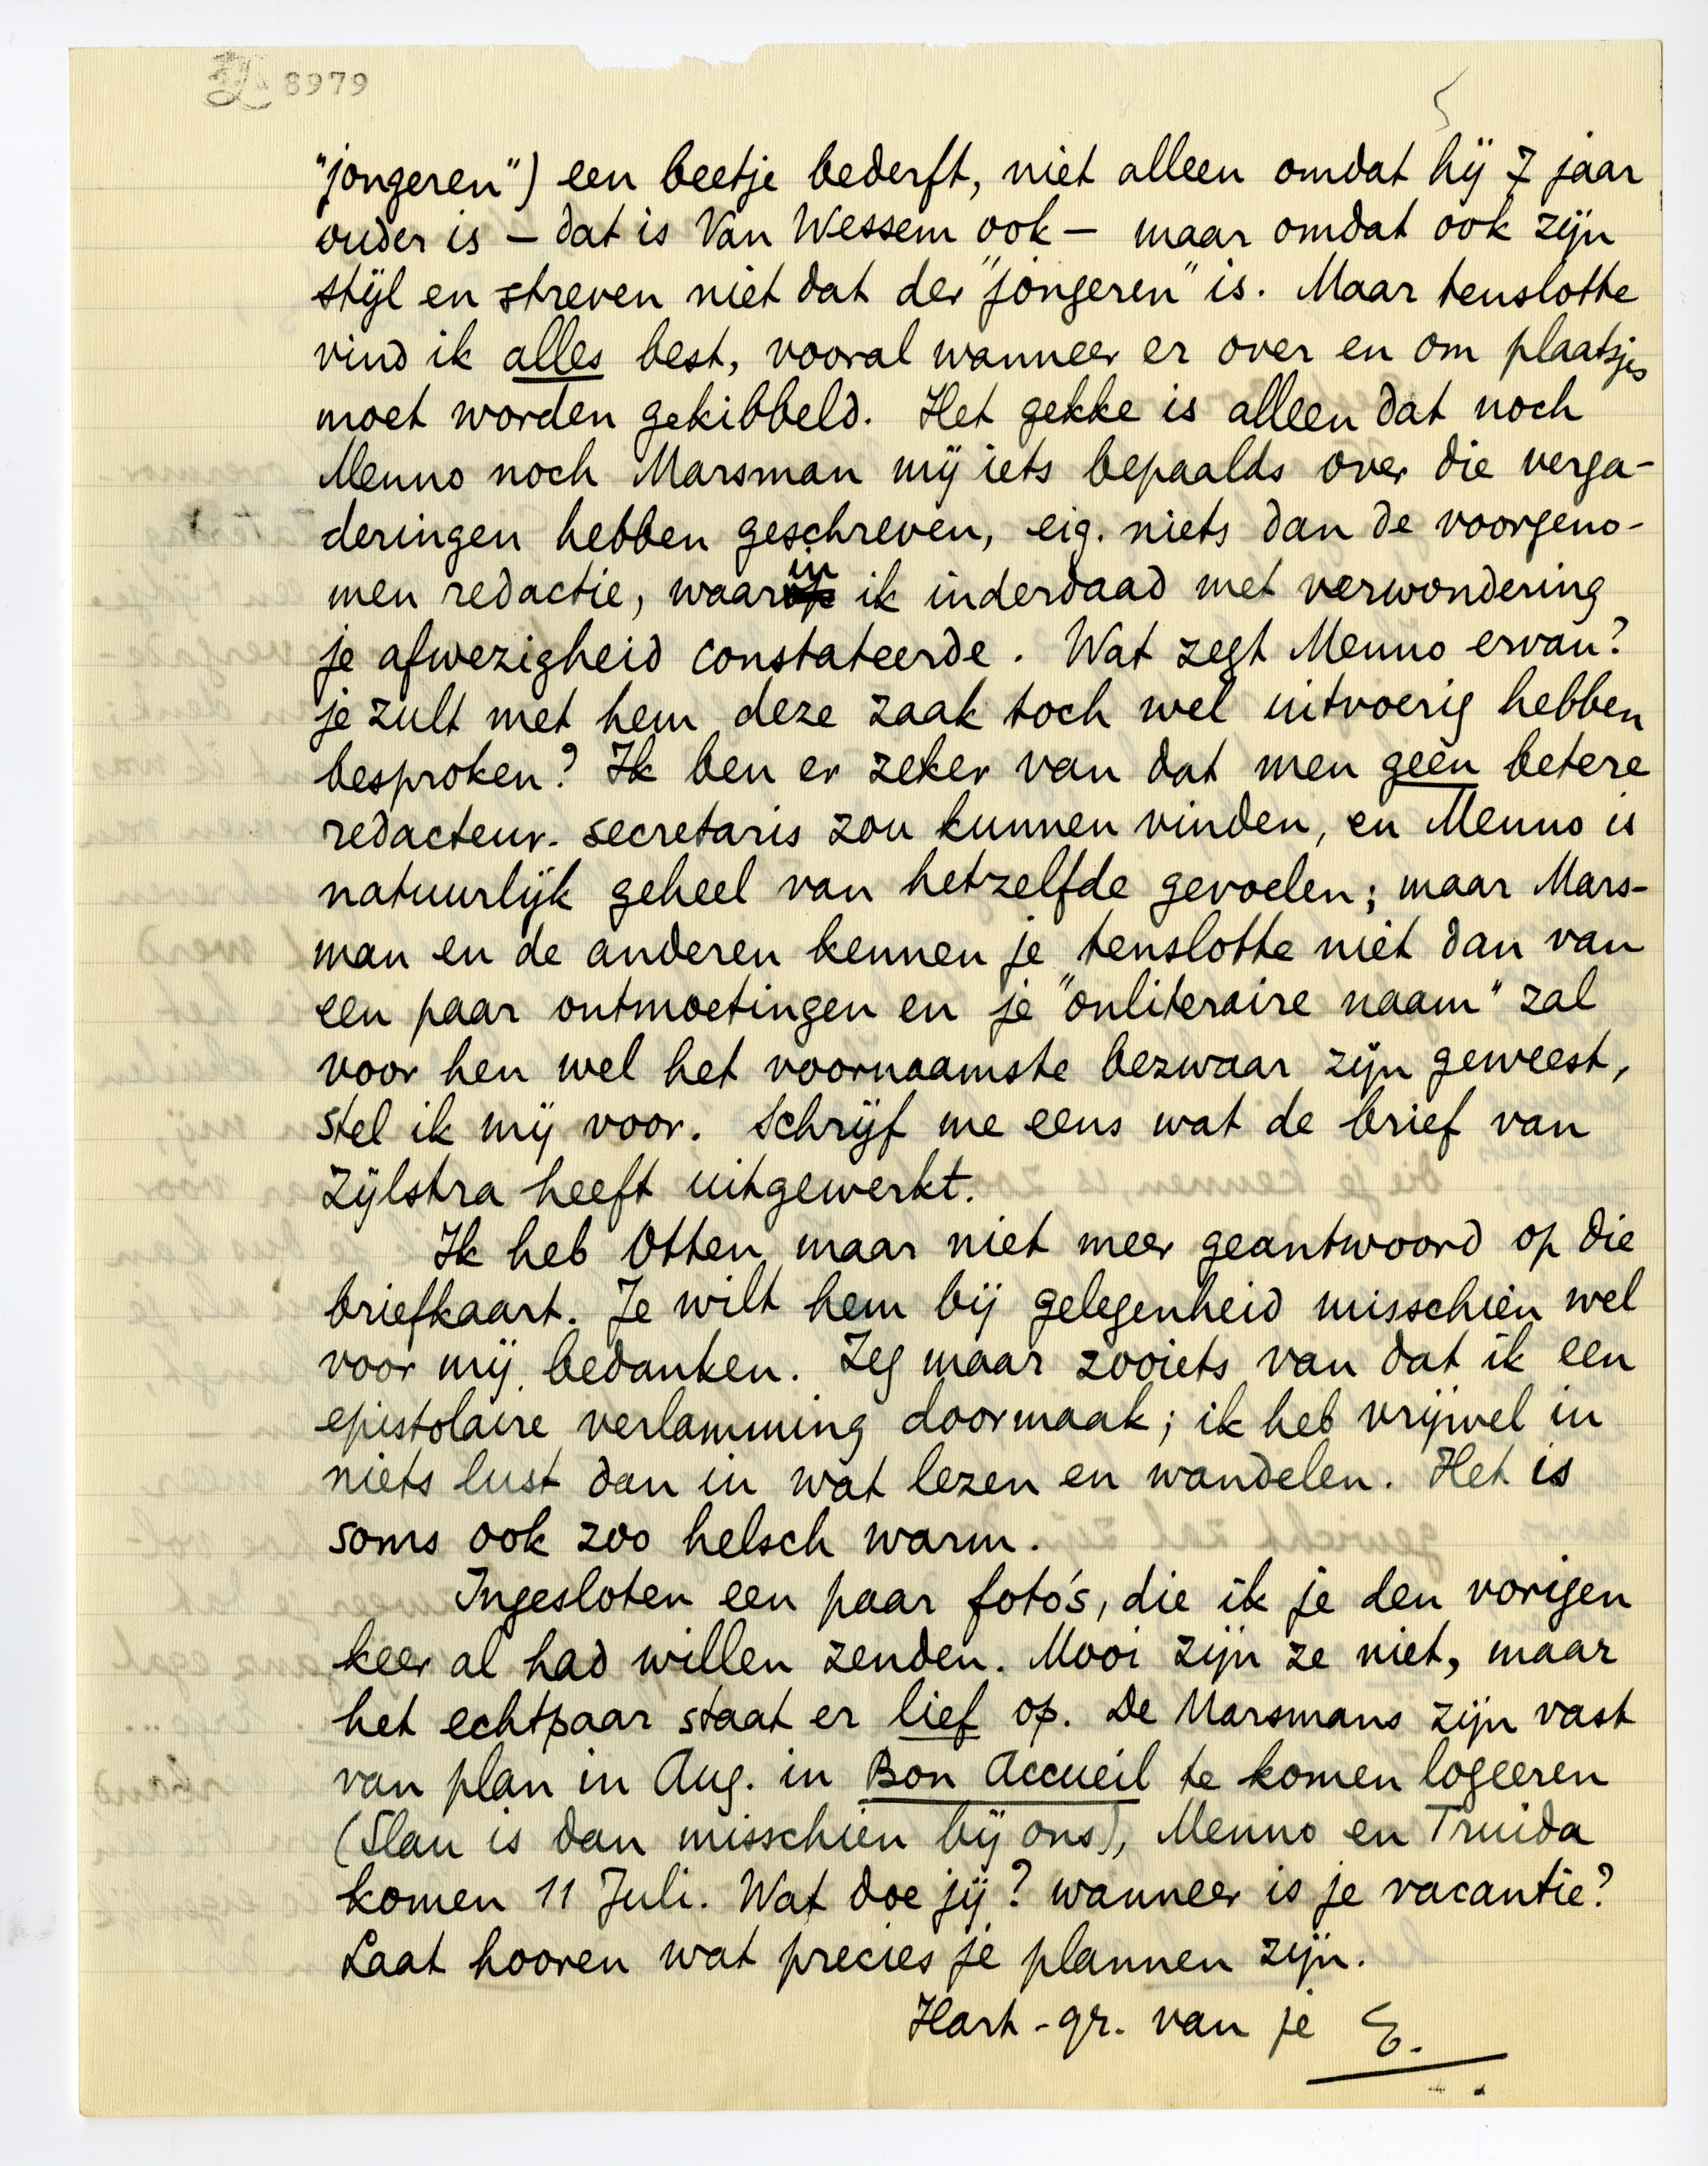 8979
"jongeren") een beetje bederft, niet alleen omdat hij 7 jaar
ouder is — dat is Van Wessem ook — maar omdat ook zijn
stijl en streven niet dat der "jongeren" is. Maar tenslotte
vind ik alles best, vooral wanneer er over en om plaatsjes
moet worden gekibbeld. Het gekke is alleen dat noch
Menno noch Marsman mij iets bepaalds over die verga-
deringen hebben geschreven, eig. niets dan de voorgeno-
men redactie, waarin ik inderdaad met verwondering
je afwezigheid constateerde. Wat zegt Menno ervan?
je zult met hem deze zaak toch wel uitvoerig hebben
besproken? Ik ben er zeker van dat men geen betere
redacteur-secretaris zou kunnen vinden, en Menno is
natuurlijk geheel van hetzelfde gevoelen; maar Mars-
man en de anderen kennen je tenslotte niet dan van
een paar ontmoetingen en je "onliteraire naam" zal
voor hen wel het voornaamste bezwaar zijn geweest,
stel ik mij voor. Schrijf me eens wat de brief van
Zijlstra heeft uitgewerkt.
Ik heb Otten maar niet meer geantwoord op die
briefkaart. Je wilt hem bij gelegenheid misschien wel
voor mij bedanken. Zeg maar zooiets van dat ik een
epistolaire verlamming doormaak; ik heb vrijwel in
niets lust dan in wat lezen en wandelen. Het is
soms ook zoo helsch warm.
Ingesloten een paar foto's, die ik je den vorigen
keer al had willen zenden. Mooi zijn ze niet, maar
het echtpaar staat er lief op. De Marsmans zijn vast
van plan in Aug. in Bon Accueil te komen logeeren
(Slau is dan misschien bij ons), Menno en Truida
komen 11 Juli. Wat doe jij? wanneer is je vacantie?
Laat hooren wat precies je plannen zijn.
Hart-gr. van je E.